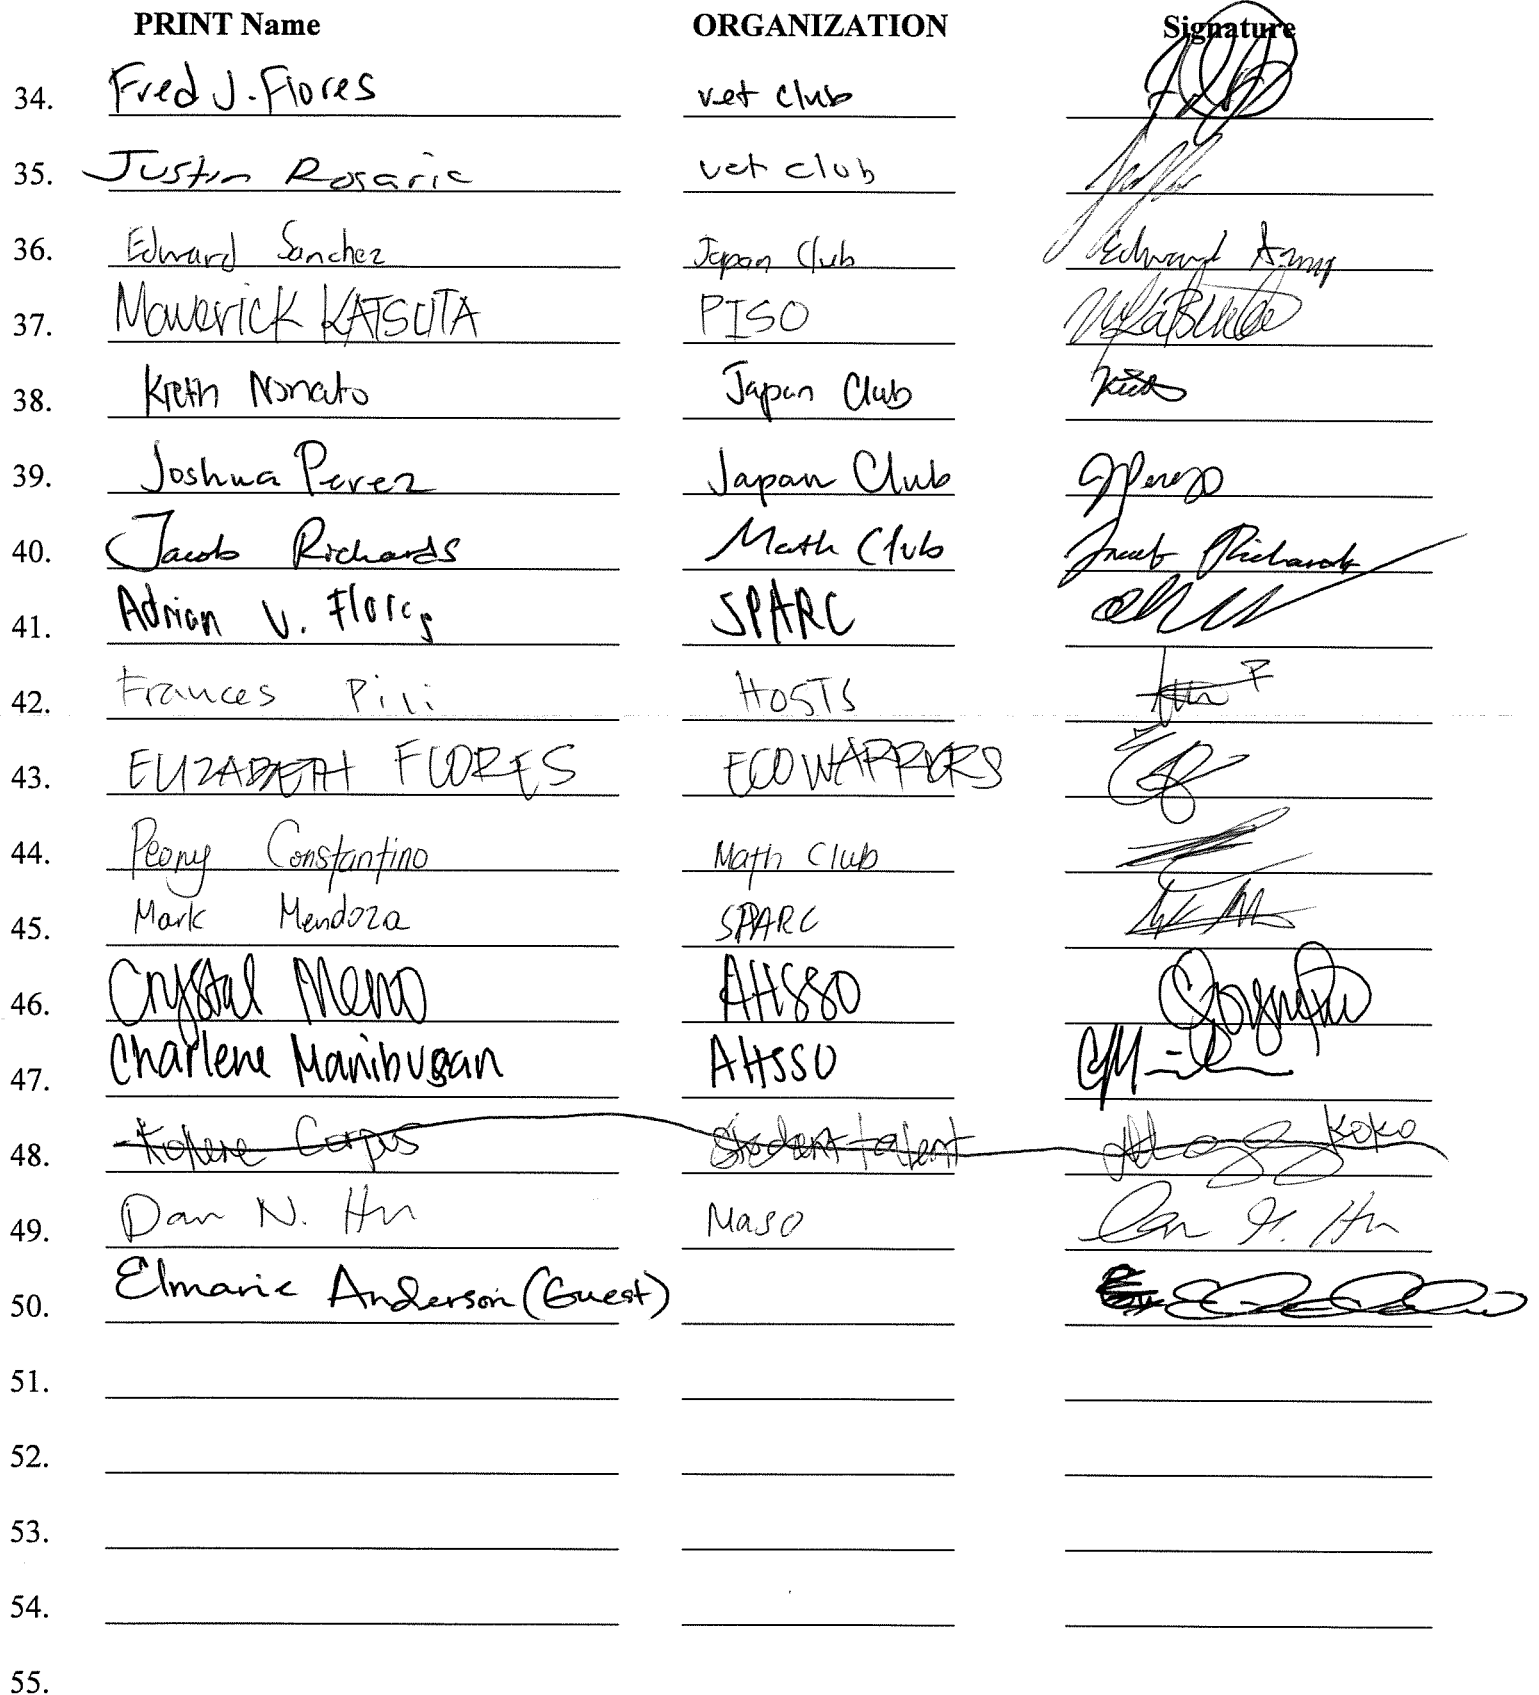 PRINT Name ORGANIZATION Signature
34. Fred J. Flores vet club
35. Justin Rosario vet club
36. Edward Sanchez Japan Club Edward
37. Maverick KATSUTA PISO
38. Kieth Nonato Japan Club Kieth
39. Joshua Perez Japan Club JPerez
40. Jacob Richards Math Club Jacob Richards
41. Adrian V. Flores SPARC
42. Frances Pili HOSTS
43. ELIZABETH FLORES ECOWARRIORS
44. Peony Constantino Math Club
45. Mark Mendoza SPARC
46. Crystal Meno AHSSO
47. Charlene Manibusan AHSSO
48. Corpus Student talent Koko
49. Dan N. Hu Maso Dan N. Hu
50. Elmarie Anderson (Guest)
51.
52.
53.
54.
55.